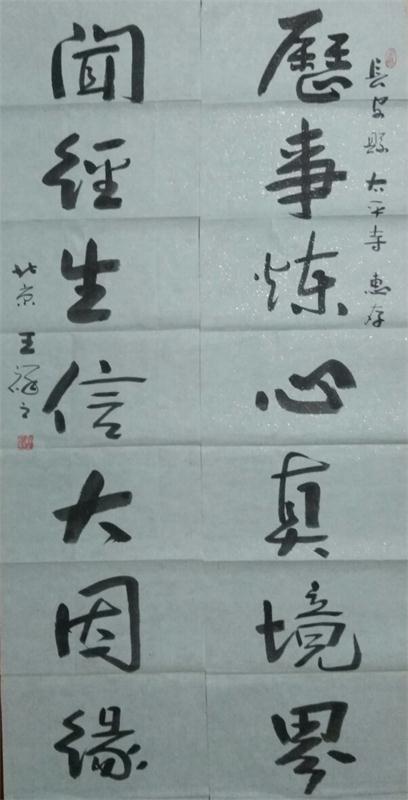 長安縣太平寺惠存
歷事煉心真境界
聞經生信大因緣
北京王之